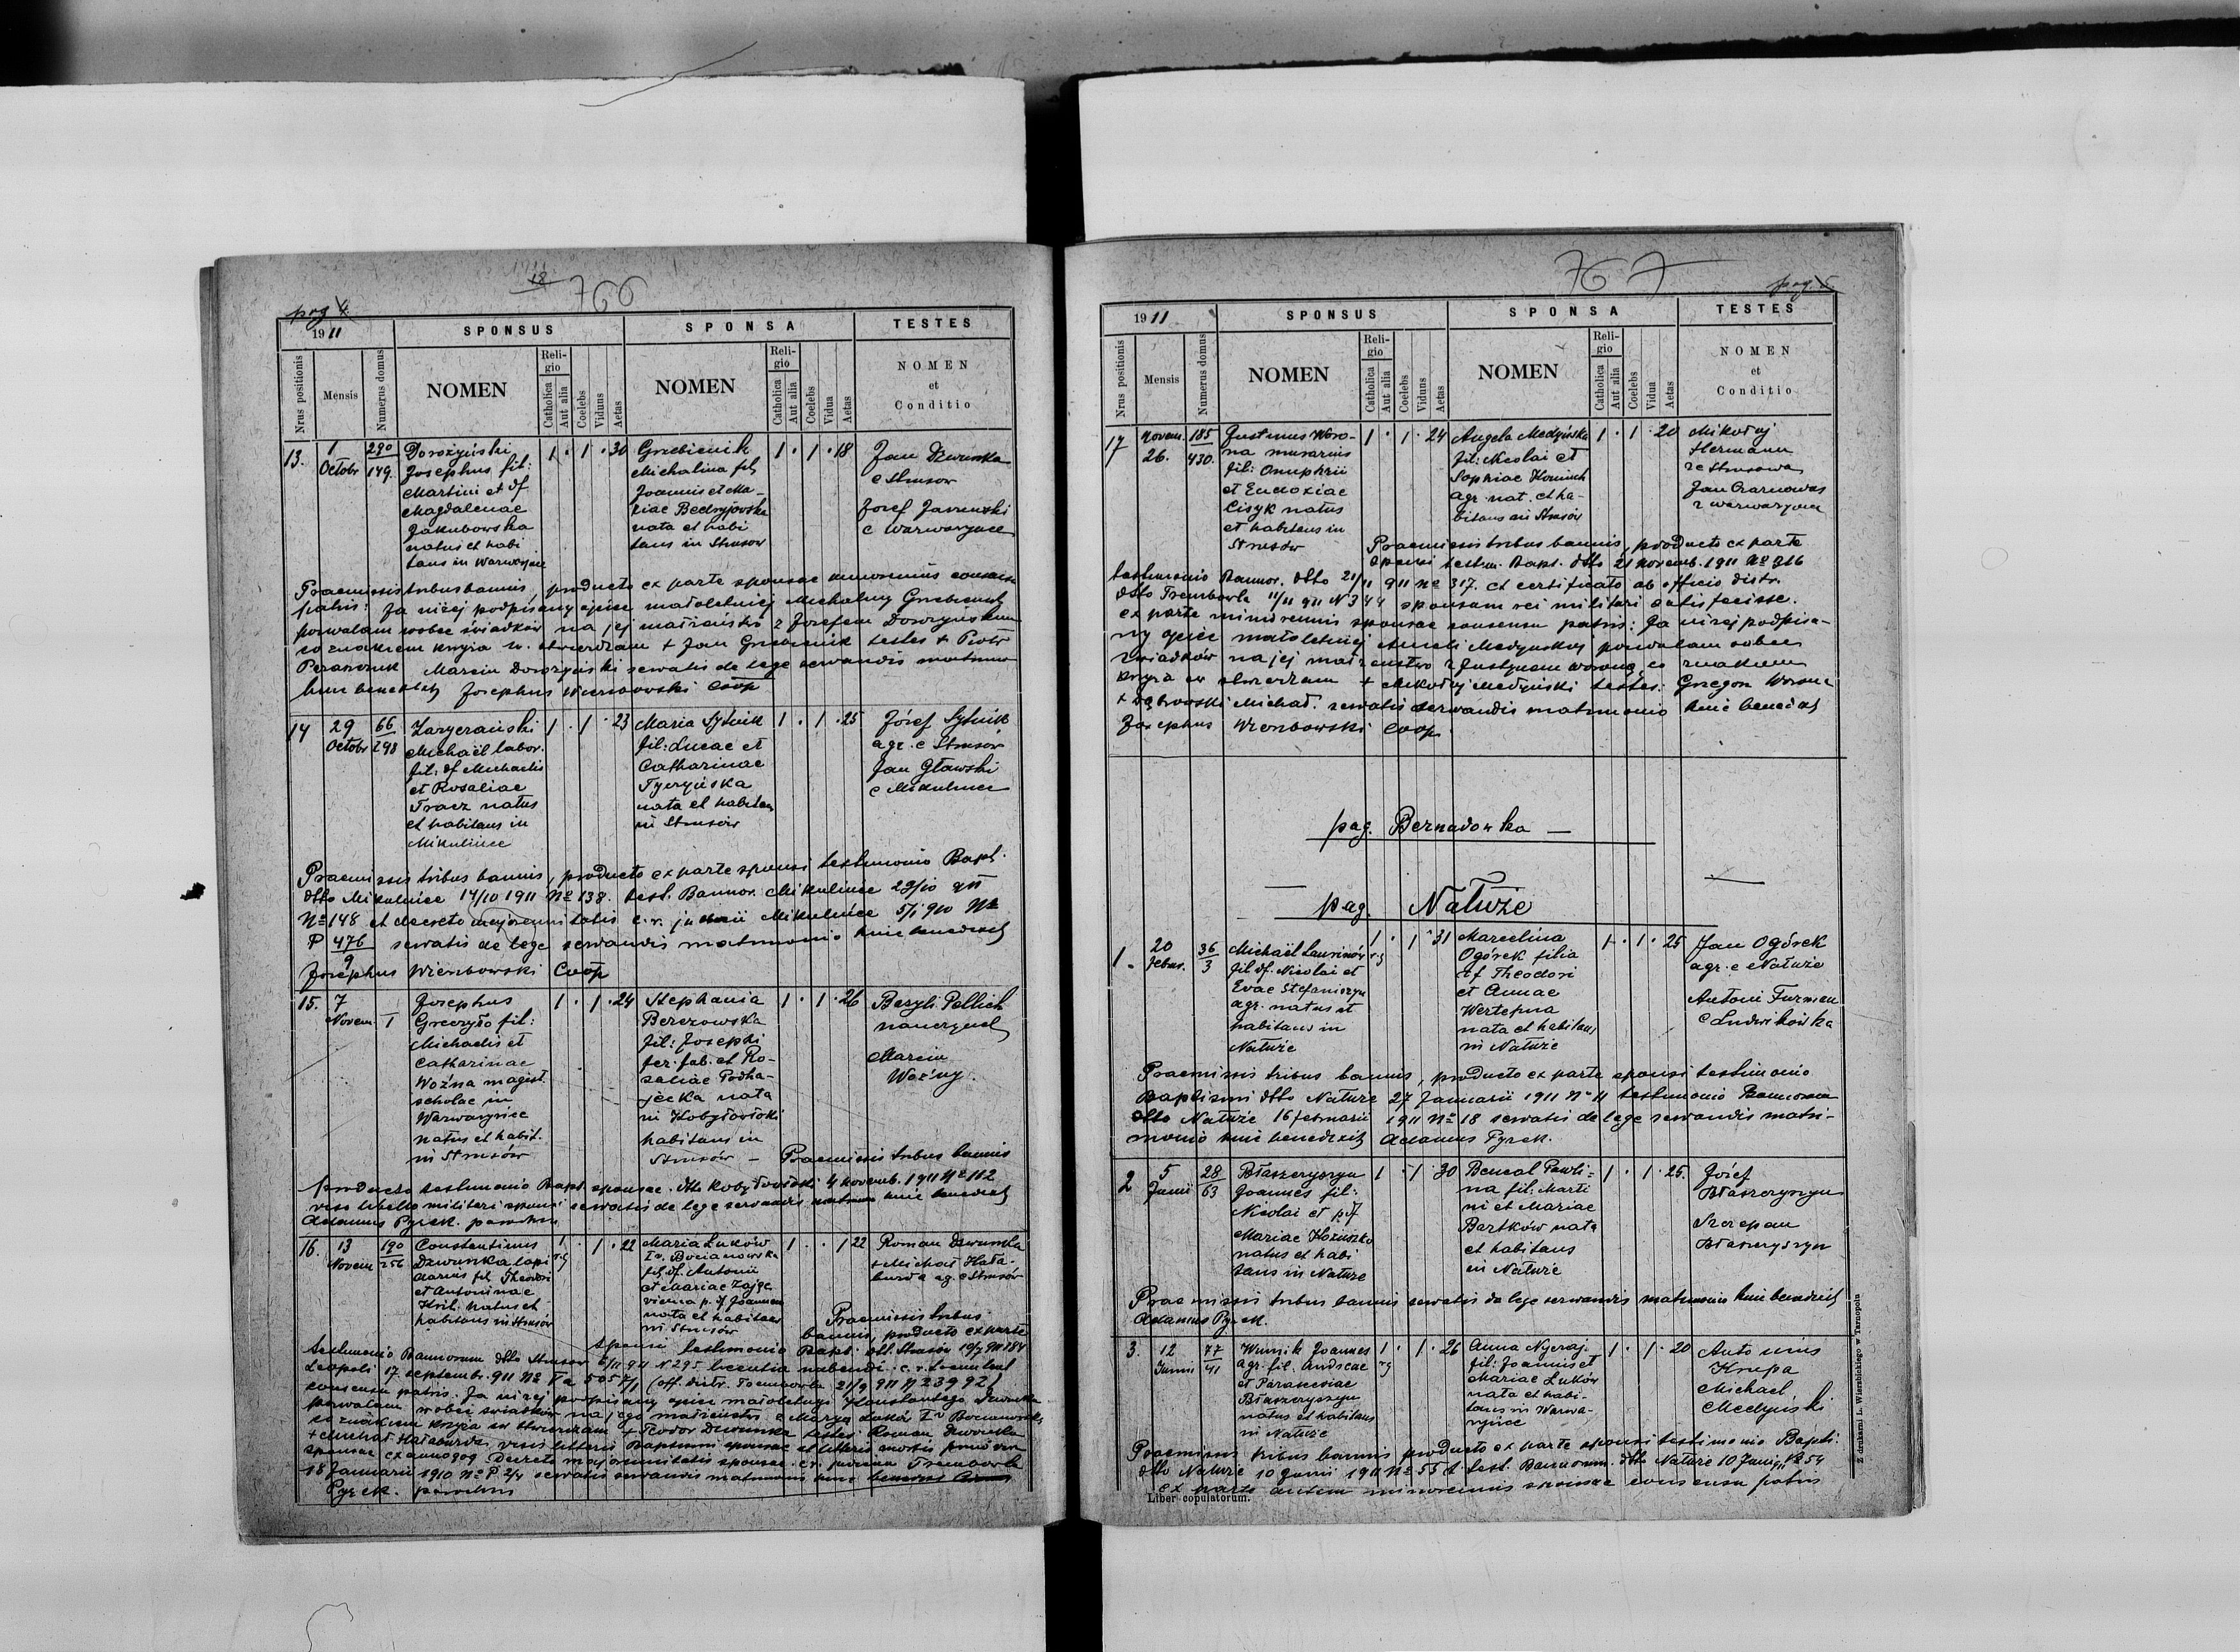 18
766
pag 4.
1911
SPONSUS
SPONSA
TESTES
Nrus positionis
Mensis
Numerus domus
NOMEN
Religio
Catholica
Aut alia
Coelebs
Viduus
Aetas
NOMEN
Religio
Catholica
Aut alia
Coelebs
Vidua
Aetas
NOMEN
et
Conditio
13.
1
Octobr
290
179.
Dorożyński
Josephus fil:
Martini et df
Magdalenae
Jakubowska
natus et habi
tans in Warwaryńce
1 . 1 . 30
Grzebienik
Michalina fil
Joannis et Ma-
riae
nata et habi
tans in Strusow
1 . 1 . 18
Jan Dżwunka
e Strusow
Josef
e Warwarynce
Praemissis tribus bannis, producto ex parte sponsae minorennis consensu
patris: Ja niżej podpisany ojciec małoletniej Michaliny Grzebieniek
pozwalam wobec świadków na jej małżeństwo z Josefem Dorożyńskim
co znakiem krzyża św. stwierdzam + Jan Grzebienik testes + Piotr
Marcin Dorożyński servatis de lege servandis matrimo
hunc benedixit Josephus Wierzbowski Coop
14
29
Octobr
66
298
Michaël labor.
fil: df Michaelis
et Rosaliae
Tracz natus
et habitans in
Mikulince
1 . 1 . 23
Maria Sytnik
fil: Lucae et
Catharinae
nata et habitans
in Strusów
1 . 1 . 25
Józef Sytnik
agr. e Strusów
Jan Gławski
e Mikulince
Praemissis tribus bannis, producto ex parte sponsi testimonio Bapt.
dtto Mikulince 14/10 1911 No 138. test. Bannor. Mikulince 29/10 911
No 148 et decreto majorennitatis c. r. judicii Mikulince 5/1 910 No
P 476/9 servatis de lege servandis matrimonio hunc benedixit
Josephus Wierzbowski Coop
15.
7
Novem
I
Josephus
Greczyło fil:
Michaelis et
Catharinae
Woźna magist.
scholae in
Warwarynce
natus et habit.
in Strusów
1 . 1 . 24
Stephania
Berezowska
fil: Josephi
fer. fab. et Ro-
saliae Podha-
jecka nata
in Kobyłowłoki
habitans in
Strusów -
1 . 1 . 26
Bazyli Pellich
nauczyciel
Marcin
Woźny.
Praemissis tribus bannis
producto testimonio Bapt. sponsae. dtto Kobyłowłoki 4 novemb. 1911 No 112
viso libello militari sponsi servatis de lege servandis matrimo hunc benedixit
Adamus Pyrek. parochus
16.
13
Novem
190
256
Constantinus
Dżwunka lapi
darius fil Theodori
et Antoninae
Kril. natus et
habitans in Strusów
1 rg . 1 . 22
Maria Luków
I v. Bocianowska
fil. df. Antonii
et Mariae Zając
vidua p. df Joannem
nata et habitans
in Strusów
1 . . 1 22
Roman Dżwunka
+ Michał Hała-
burda ag. e Strusów
Praemissis tribus
bannis, producto ex parte
sponsi testimonio Bapt. dtt. Strusów 19/9 911 184
testimonio Bannorum dtto Strusów 5/11 911 N 295 licentia nubendi c. r.
Leopoli 17. septemb. 911 No 5057/1 (off. distr. Trembowla 21/9 911 N 23992)
consensu patris. Ja niżej podpisany ojciec małoletniego Konstantego Dżwunka
pozwalam wobec świadków na jego małżeństwo z Maryą Luków I v Bocianowską
co znakiem krzyża św stwierdzam + Teodor Dżwunka testes Roman Dżwunka
+ Michał Hałaburda, visis litteris Baptismi sponsae et litteris mortis
sponsae Decreto majorennitatis sponsae. c. r. judicii Trembowla
18 Januarii 1910 No P 2/4 servatis servandis matrimonio hunc benedixit Adamus
Pyrek. parochus
767
pag. 5
1911
SPONSUS
SPONSA
TESTES
Nrus positionis
Mensis
Numerus domus
NOMEN
Religio
Catholica
Aut alia
Coelebs
Viduus
Aetas
NOMEN
Religio
Catholica
Aut alia
Coelebs
Vidua
Aetas
NOMEN
et
Conditio
17
Novem.
26.
185
430.
Justinus Woro-
na murarius
fil: Onuphrii
et Eudoxiae
Cisyk natus
et habitans in
Strusów
1 . 1 . 24
Angela Medyńska
fil: Nicolai et
Sophiae
agr. nat. et ha-
bitans in Strusów
1 . 1 . 20
Mikołaj
Hermann
ze Strusowa
Jan Czarnowus
z Warwaryniec
Praemissis tribus bannis, producto ex parte
sponsi testim. Bapt. dtto 21 novemb. 1911 No 316
testimonio Bannor. dtto 21/11 911 No 317. et certificato ab officio distr.
dtto Trembowla 11/11 911 N 344 sponsum rei militari satisfecisse.
ex parte minorennis sponsae consensu patris: Ja niżej podpisa-
ny ojciec małoletniej Anieli Medyńskiej pozwalam wobec
świadków na jej małżeństwo z Justynem Woroną co znakiem
krzyża św stwierdzam + Mikołaj Medyński testes: Grzegorz Worona
+ Dąbrowski Michał. servatis servandis matrimonio hunc benedixit
Josephus Wierzbowski Coop.
pag. Bernadowka —
pag. Nałuże
1.
20
Febur.
36
3
Michaël Laurinów
fil df. Nicolai et
Evae Stefaniszyn
agr. natus et
habitans in
Nałuże
1 rg . 1 . 31
Marcelina
Ogórek filia
df Theodori
et Annae
Wertepna
nata et habitans
in Nałuże
1 . 1 . 25
Jan Ogórek
agr. e Nałuże
Antoni Furman
e Ludwikówka
Praemissis tribus bannis, producto ex parte sponsi testimonio
Baptismi dtto Nałuże 27 Januarii 1911 No 11 testimonio Bannorum
dtto Nałuże 16 februarii 1911 No 18 servatis de lege servandis matri-
monio hunc benedixit Adamus Pyrek.
2
5
Junii
28
63
Błaszczyszyn
Joannes fil:
Nicolai et p. df
Mariae
natus et habi
tans in Nałuże
1 . 1 30
Bencal Pawli-
na fil: Marti
ni et Mariae
Bartków nata
et habitans
in Nałuże
1 . 1 . 25.
Józef
Błaszczyszyn
Szczepan
Błaszczyszyn
Praemissis tribus bannis servatis de lege servandis matrimonio hunc benedixit
Adamus Pyrek.
3.
12
Junii
77
41
Joannes
agr. fil. Andreae
et Parasceviae
Błaszczyszyn
natus et habitans
in Nałuże
1 rg . 1 . 26
Anna
fil: Joannis et
Mariae Luków
nata et habi-
tans in Warwa-
rynce
1 . 1 . 20
Antonius
Krupa
Michael
Medyński
Praemissis tribus bannis producto ex parte sponsi testimonio Bapti.
dtto Nałuże 10 Junii 1911 No 55 et test. Bannorum. dtto Nałuże 10 Junii No 54
ex parte autem minorennis sponsae consensu patris
Liber copulatorum.
Z drukarni L. Wierzbickiego w Tarnopolu